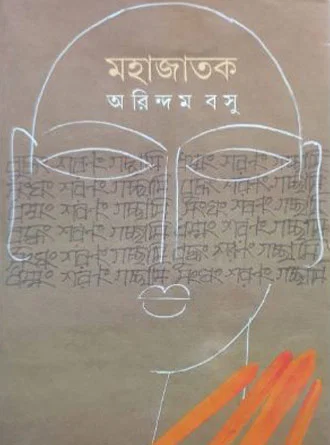 মহাজাতক
অরিন্দম বসু
বুদ্ধং শরণং গচ্ছামি ধম্মং শরণং গচ্ছামি
সংঘং শরণং গচ্ছামি বুদ্ধং শরণং গচ্ছামি
ধম্মং শরণং গচ্ছামি সংঘং শরণং গচ্ছামি
বুদ্ধং শরণং গচ্ছামি ধম্মং শরণং গচ্ছামি
সংঘং শরণং গচ্ছামি বুদ্ধং শরণং গচ্ছামি
ধম্মং শরণং গচ্ছামি সংঘং শরণং গচ্ছামি